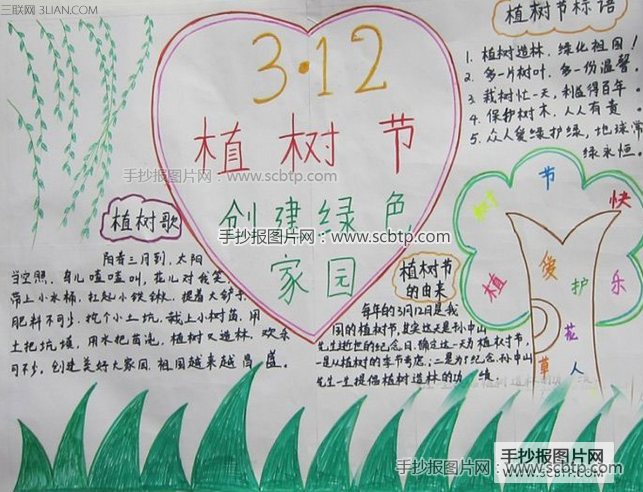 三联网 3LIAN.COM
3·12
植树节
创建绿色
家园
手抄报图片网:www.scbtp.com
手抄报图片网:www.scbtp.com
植树节标语
1. 植树造林、绿化祖国!
2. 多一片树叶,多一份温馨。
3. 栽树忙一天,利益得百年。
4. 保护树木,人人有责
5. 众人爱绿护绿,地球常
绿永恒。
植树歌
阳春三月到,太阳
当空照,鸟儿喳喳叫,花儿对我笑,
带上小水桶,扛起小铁锹,提着大铲子,
肥料不可少,挖个小土坑,栽上小树苗,用
土把坑填,用水把苗浇,植树又造林,欢乐
可不少,创建美好大家园,祖国越来越昌盛。
植树节
的由来
每年的3月12日是我
国的植树节,其实这天是孙中山
先生逝世的纪念日。确定这一天为植树节,
一是从植树的季节考虑;二是为了纪念孙中山
先生一生提倡植树造林的功绩
植树节快乐
爱护花草人
手抄报图片网:www.scbtp.com
手抄报图片网
www.scbtp.com